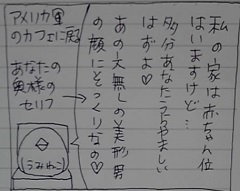 私の家は赤ちゃん位
はいますけど…
多分あなたうらやましい
はずよ♡
あの大無しの美形男
の顔にそっくりなの♡
アメリカ軍
のカフェに
あなたの
奥様の
セリフ
(うみねこ)